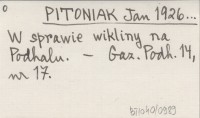 PITONIAK Jan 1926...
W sprawie wikliny na
Podhalu. – Gaz. Podh. 14,
nr 17.